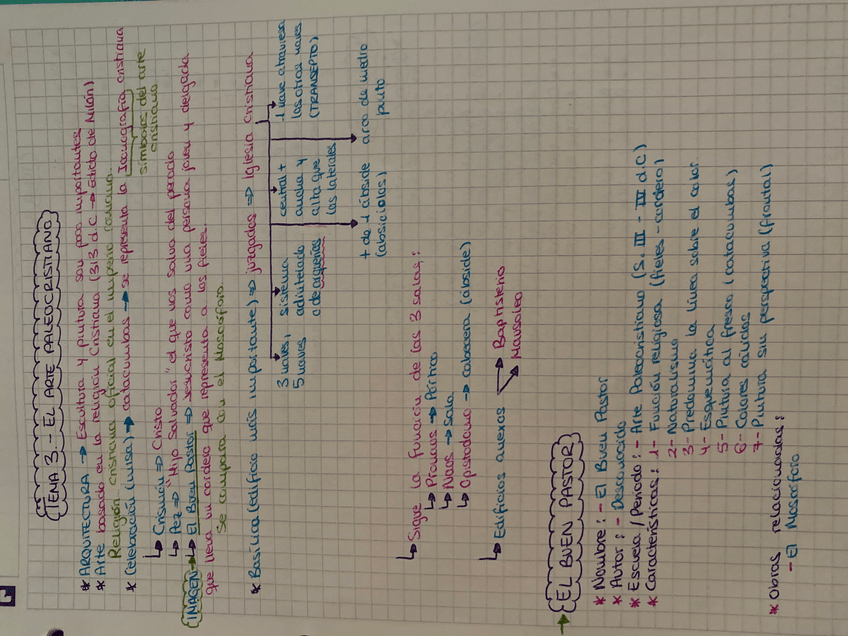 TEMA 3.- EL ARTE PALEOCRISTIANO
* ARQUITECTURA → Escultura y pintura son poco importantes
* Arte basado en la religión Cristiana (313 d.C. → Edicto de Milán)
Religión cristiana oficial en el imperio romano.
* Celebración (misa) → catacumbas → se representa la Iconografía cristiana
símbolos del arte cristiano
↳ Crismón ⇒ Cristo
↳ Pez ⇒ "Hijo Salvador" el que nos salva del pecado
IMAGEN → ↳ El Buen Pastor ⇒ Jesucristo como una persona joven y delgada
que lleva un cordero que representa a los fieles.
Se compara con el Moscóforo.
* Basílica (Edificio más importante) ⇒ juzgados ⇒ Iglesia Cristiana
3 naves, 5 naves
sistema adintelado
central + ancha y alta que las laterales
1 nave atraviesa las otras naves (TRANSEPTO)
+ de 1 ábside (absidiolas)
arco de medio punto
↳ Sigue la función de las 3 salas:
↳ Pronaos → Pórtico
↳ Naos → Sala
↳ Opistodomo → cabecera (ábside)
↳ Edificios anexos → Baptisterio
→ Mausoleo
→ EL BUEN PASTOR
* Nombre: - El Buen Pastor
* Autor: - Desconocido
* Escuela / Periodo: - Arte Paleocristiano (S. III - IV d.C)
* Características: 1- Función religiosa (fieles - cordero)
2- Naturalismo
3- Predomina la línea sobre el color
4- Esquemática
5- Pintura al fresco (catacumbas)
6- Colores cálidos
7- Pintura sin perspectiva (frontal)
* Obras relacionadas:
- El Moscóforo